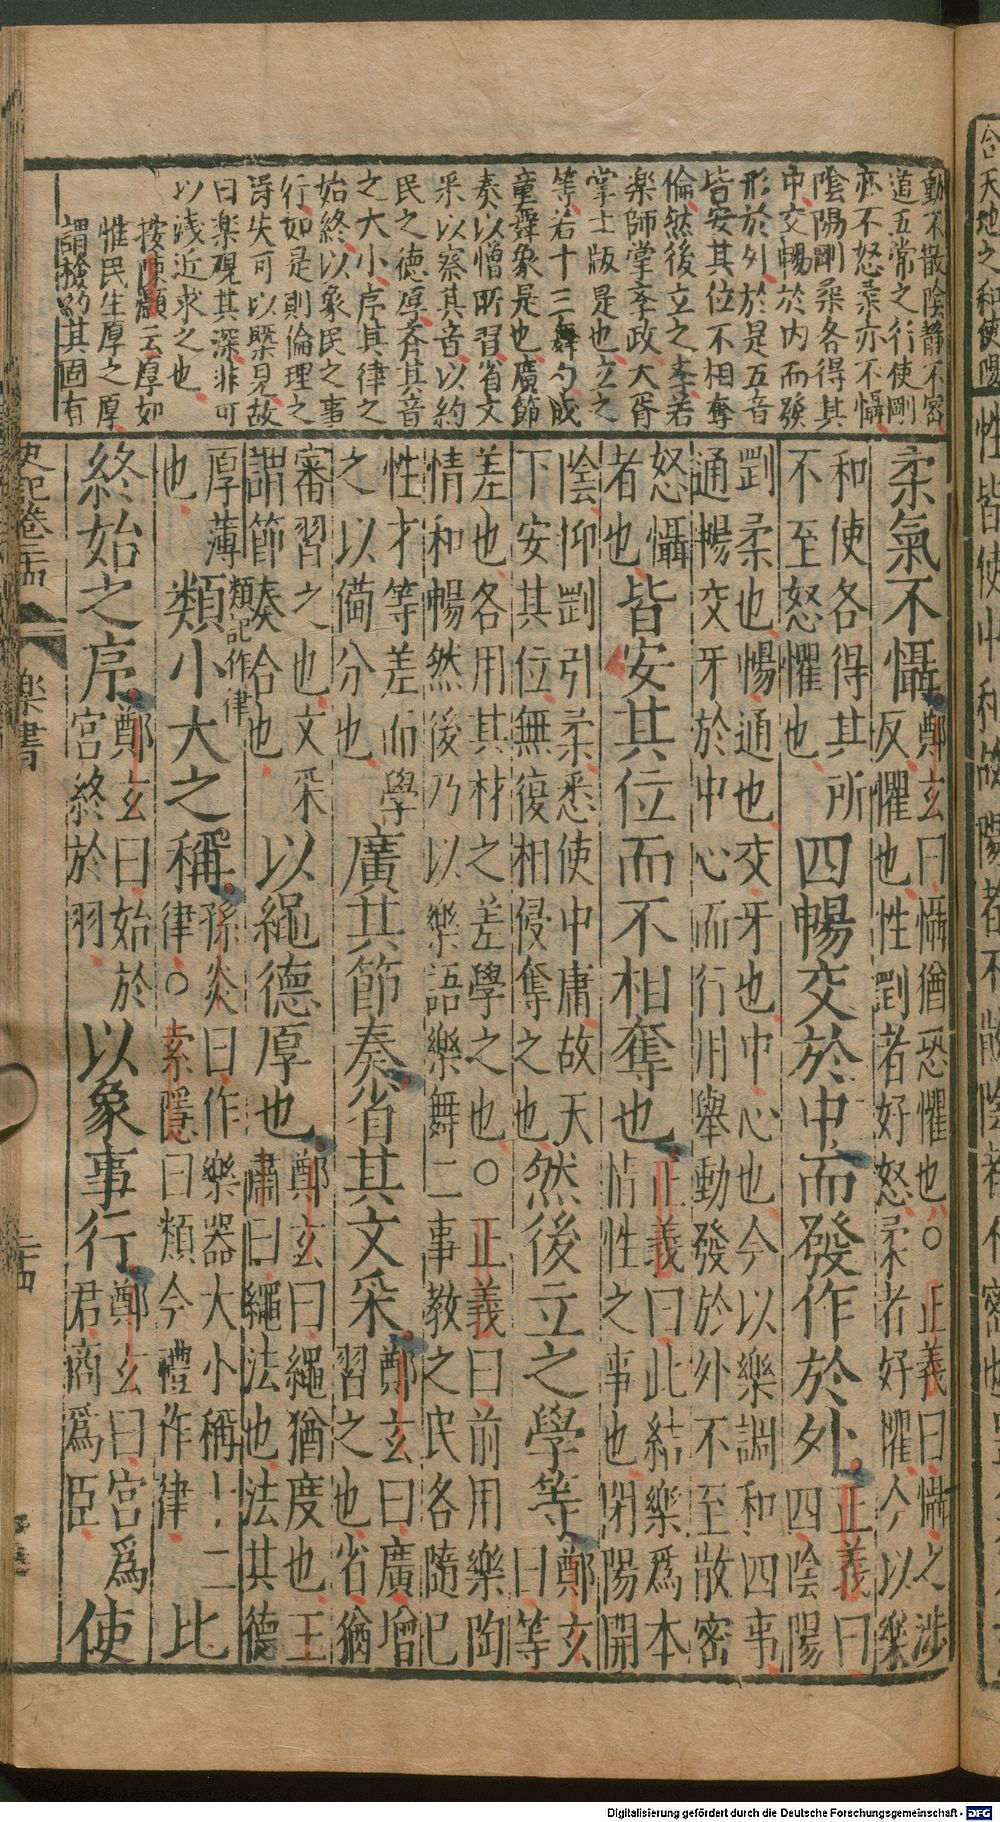 動不散陰静不密
道五常之行使剛
亦不怒柔亦不懾
陰陽剛柔各得其
中交暢於内而發
形於外於是五音
皆安其位不相奪
倫然後立之孝若
楽師掌孝政大胥
掌士版是也立之
等若十三舞勺成
童舞象是也廣節
奏以増所習省文
采以察其音以約
民之德厚斉其音
之大小序其律之
始終以象民之事
行如是則倫理之
得失可以槩見故
曰楽覌其深非可
以浅近求之也
按陳顥云厚如
惟民生厚之厚
謂檢約其固有
柔氣不懾鄭玄曰懾猶恐懼也○正義曰懾之涉
反懼也性剛者好怒柔者好懼今以樂
和使各得其所
不至怒懼也四暢交於中而發作於外正義曰
四陰陽
剛柔也暢通也交牙也中心也今以樂調和四事
通暢交牙於中心而行用舉動發於外不至散密
怒懾
者也皆安其位而不相奪也正義曰此結樂爲本
情性之事也閉陽開
陰抑剛引柔悉使中庸故天
下安其位無復相侵奪之也然後立之學等鄭玄
曰等
差也各用其材之差學之也○正義曰前用樂陶
情和暢然後乃以樂語樂舞二事教之民各隨己
性才等差而學
之以備分也廣其節奏省其文采鄭玄曰廣增
習之也省猶
審習之也文采
謂節奏合也以繩德厚也鄭玄曰繩猶度也王
肅曰繩法也法其德
厚薄
也類記作律類小大之稱孫炎曰作樂器大小稱十二
律○索隱曰類今禮作律比
終始之序鄭玄曰始於
宮終於羽以象事行鄭玄曰宮爲
君商爲臣使
史記卷二十四
樂書
二十四
Digitalisierung gefördert durch die Deutsche Forschungsgemeinschaft - DFG